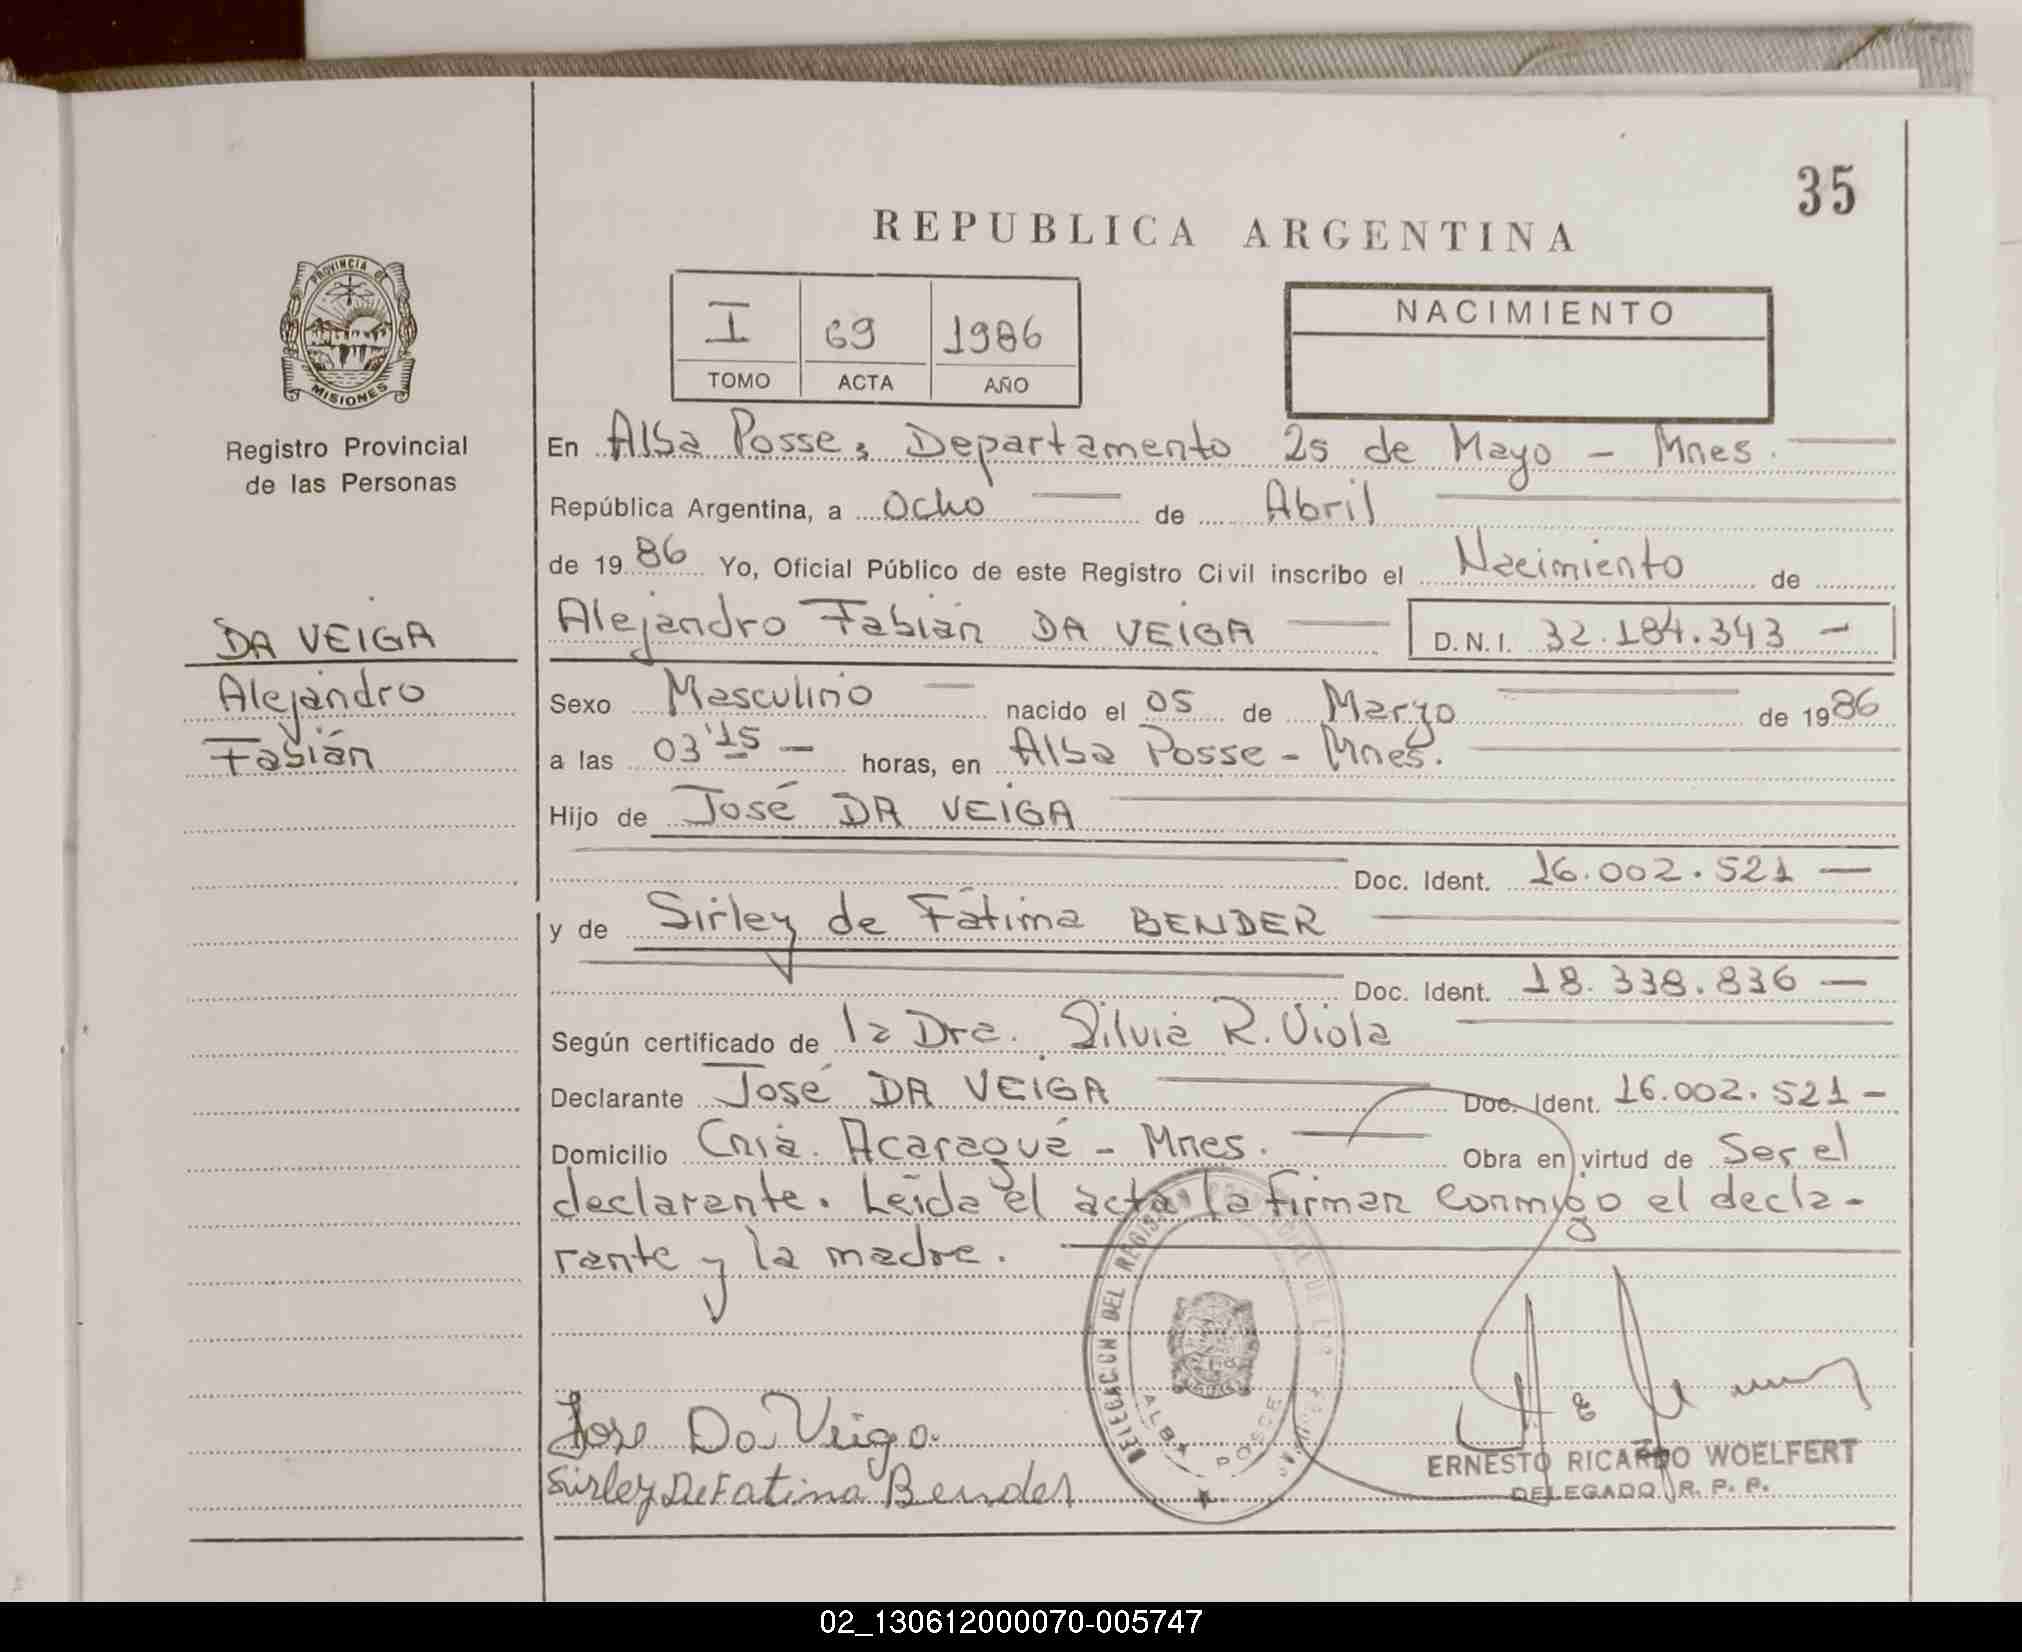 35
REPUBLICA ARGENTINA
PROVINCIA DE
MISIONES
Registro Provincial
de las Personas
I 69 1986
TOMO ACTA AÑO
NACIMIENTO
En Alba Posse, Departamento 25 de Mayo - Mnes.
República Argentina, a ocho de Abril
de 1986 Yo, Oficial Público de este Registro Civil inscribo el Nacimiento de
Alejandro Fabián DA VEIGA D.N.I. 32.184.343 -
DA VEIGA
Alejandro
Fabián
Sexo Masculino nacido el 05 de Marzo de 1986
a las 03'15 - horas, en Alba Posse - Mnes.
Hijo de José DA VEIGA
Doc. Ident. 16.002.521 -
y de Sirley de Fátima BENDER
Doc. Ident. 18.338.836 -
Según certificado de la Dra. Silvia R. Viola
Declarante José DA VEIGA Doc. Ident. 16.002.521 -
Domicilio Cnia. Acaragué - Mnes. Obra en virtud de Ser el
declarante. Leída el acta la firman conmigo el decla-
rante y la madre.
DELEGACION DEL REGISTRO PROVINCIAL DE LAS
ALBA POSSE
Jose Da Veiga.
Sirley De Fatima Bender
ERNESTO RICARDO WOELFERT
DELEGADO R. P. P.
02_130612000070-005747